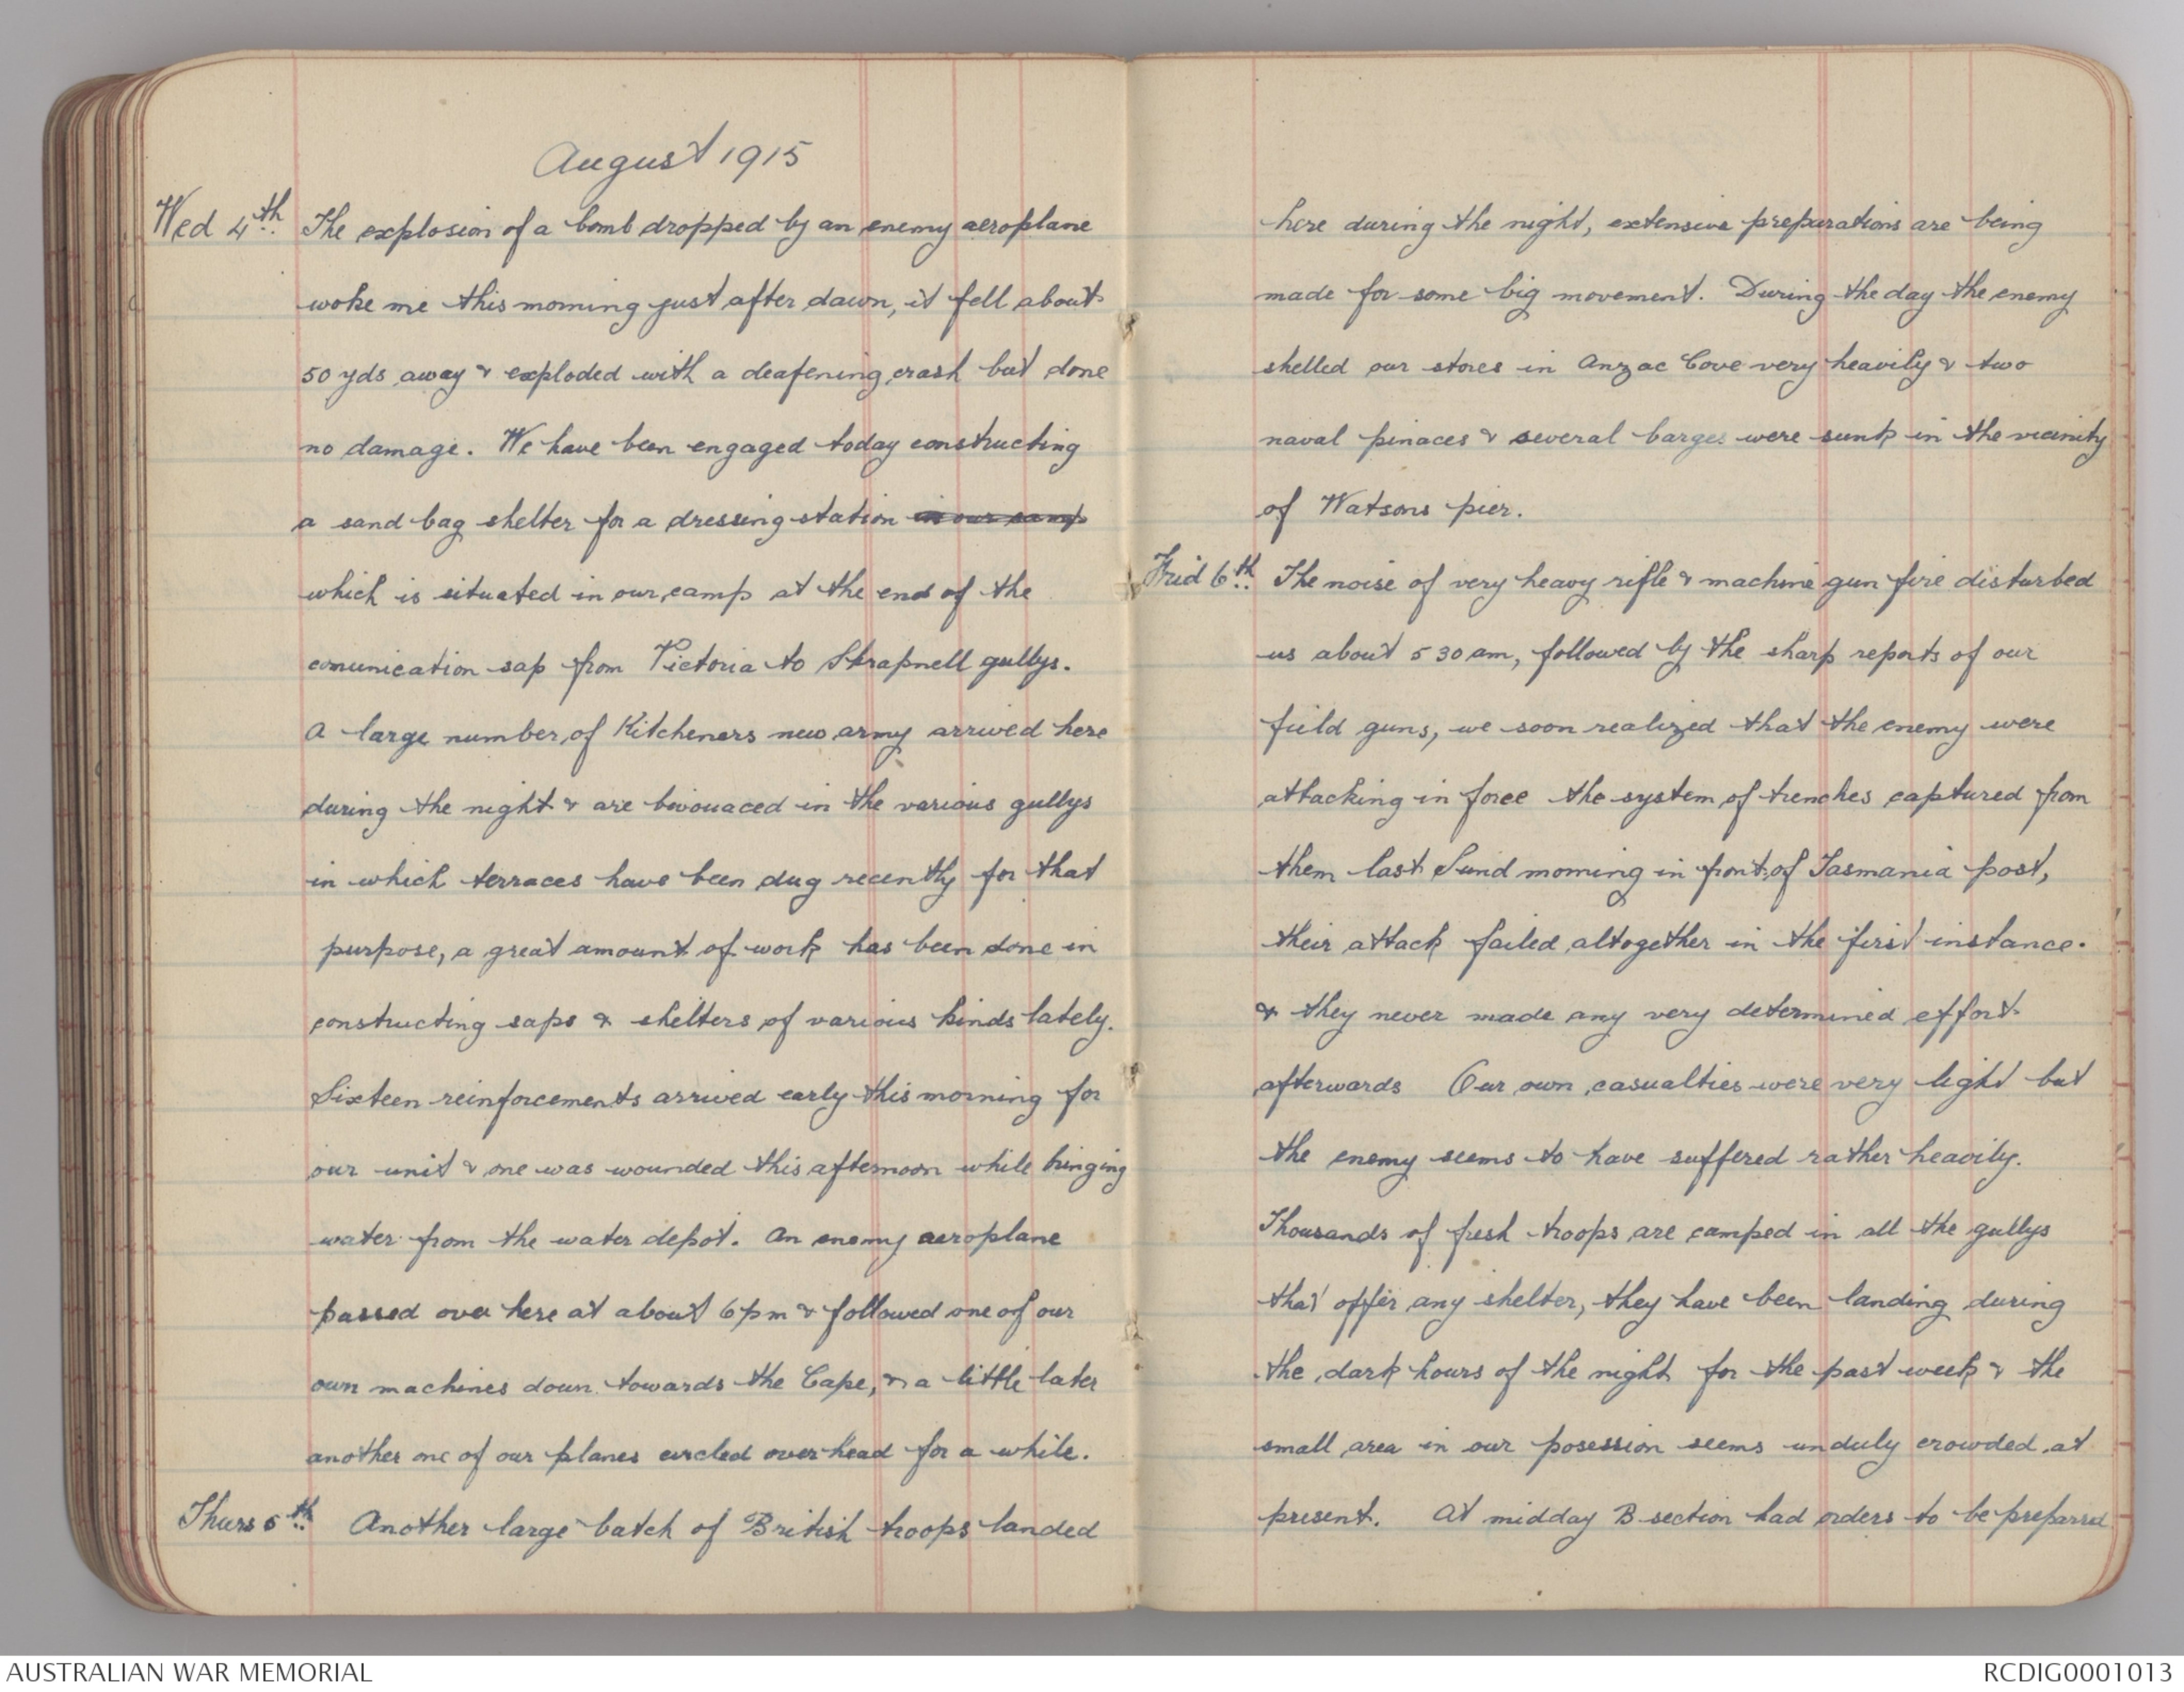 August 1915
Wed 4th. The explosion of a bomb dropped by an enemy aeroplane
woke me this morning just after dawn, it fell about
50 yds away & exploded with a deafening crash but done
no damage. We have been engaged today constructing
a sand bag shelter for a dressing station in our camp
which is situated in our camp at the end of the
comunication sap from Victoria to Shrapnell gullys.
A large number of Kitcheners new army arrived here
during the night & are bivouaced in the various gullys
in which terraces have been dug recently for that
purpose, a great amount of work has been done in
constructing saps & shelters of various kinds lately.
Sixteen reinforcements arrived early this morning for
our unit & one was wounded this afternoon while bringing
water from the water depot. An enemy aeroplane
passed over here at about 6 pm & followed one of our
own machines down towards the Cape, & a little later
another one of our planes circled over head for a while.
Thurs 5th. Another large batch of British troops landed
here during the night, extensive preparations are being
made for some big movement. During the day the enemy
shelled our stores in Anzac Cove very heavily & two
naval pinaces & several barges were sunk in the vicinity
of Watsons pier.
Frid 6th. The noise of very heavy rifle & machine gun fire disturbed
us about 5 30 am, followed by the sharp reports of our
field guns, we soon realized that the enemy were
attacking in force the system of trenches captured from
them last Sund morning in front of Tasmania post,
their attack failed altogether in the first instance.
& they never made any very determined effort
afterwards Our own casualties were very light but
the enemy seems to have suffered rather heavily.
Thousands of fresh troops are camped in all the gullys
that offer any shelter, they have been landing during
the dark hours of the night for the past week & the
small area in our posession seems unduly crowded at
present. At midday B section had orders to be prepared
AUSTRALIAN WAR MEMORIAL
RCDIG0001013